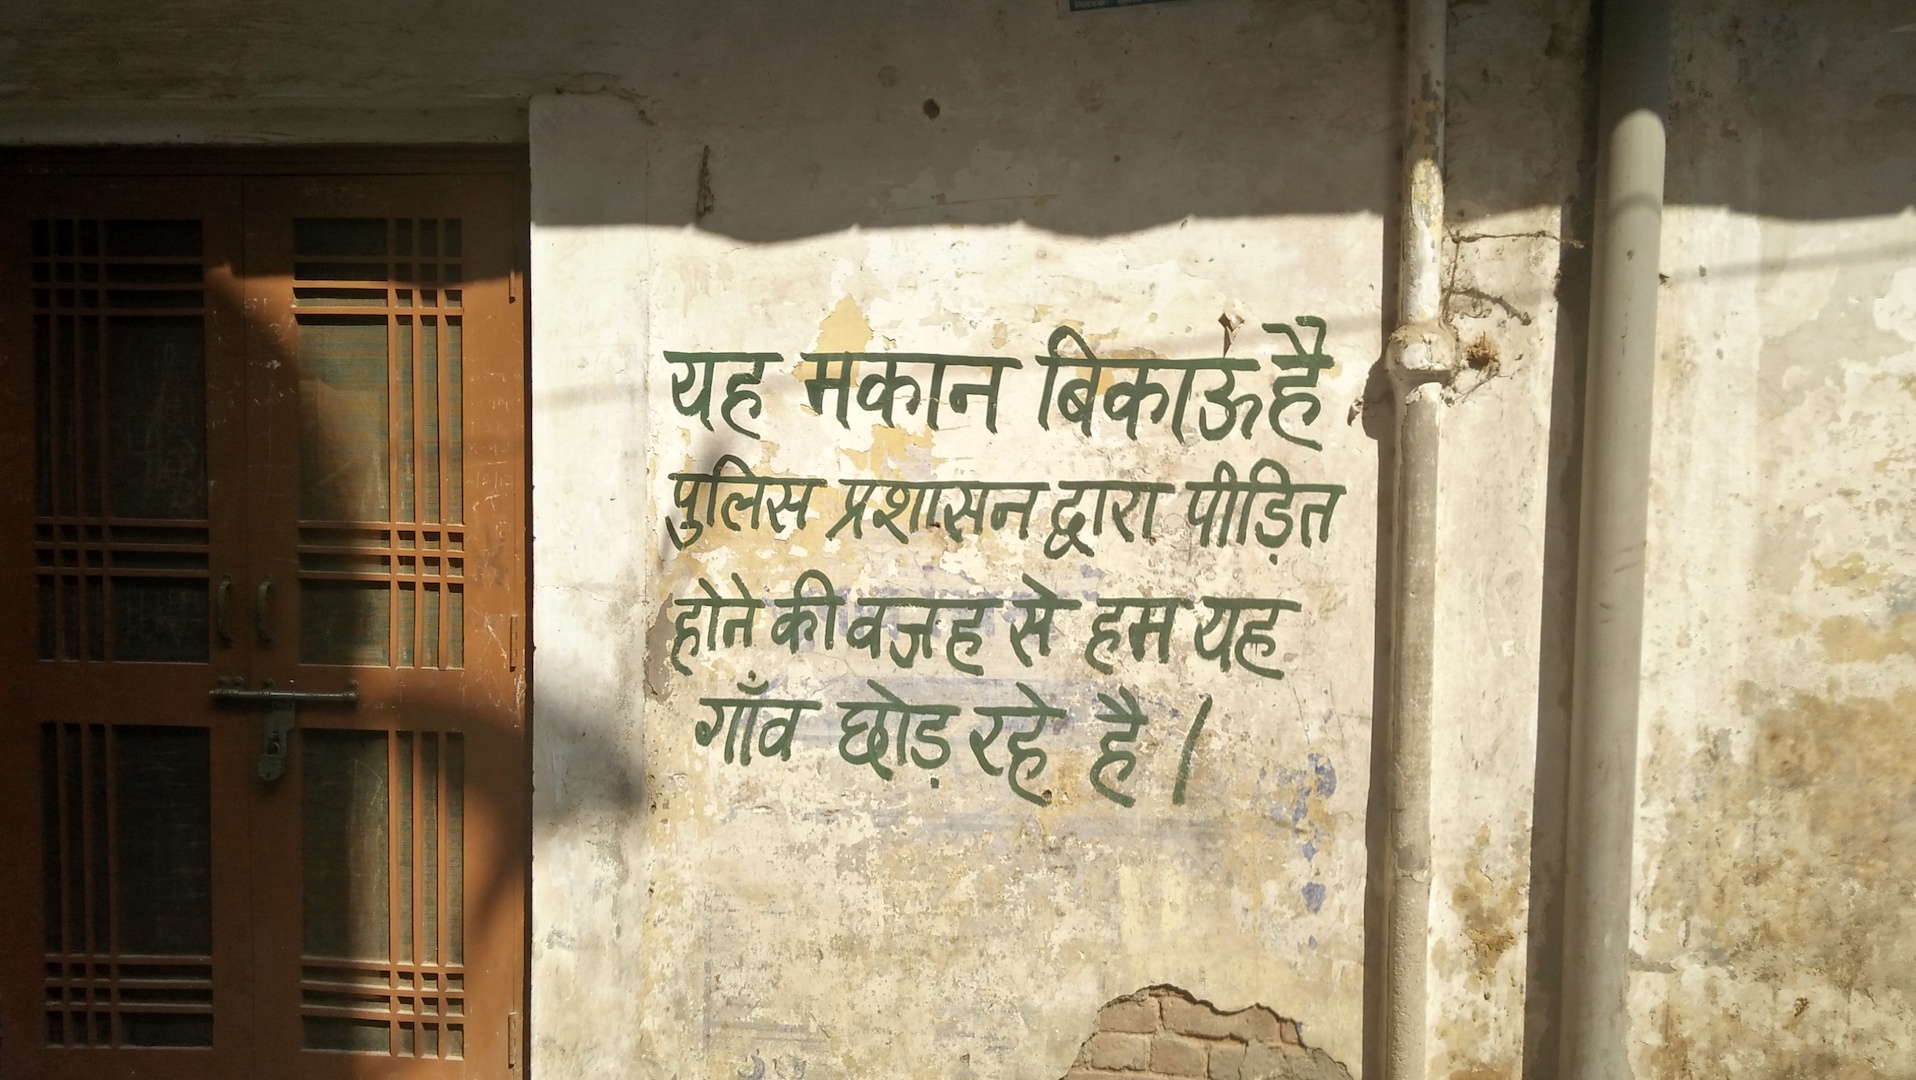 यह मकान बिकाऊ है
पुलिस प्रशासन द्वारा पीड़ित
होने की वजह से हम यह
गाँव छोड़ रहे है।